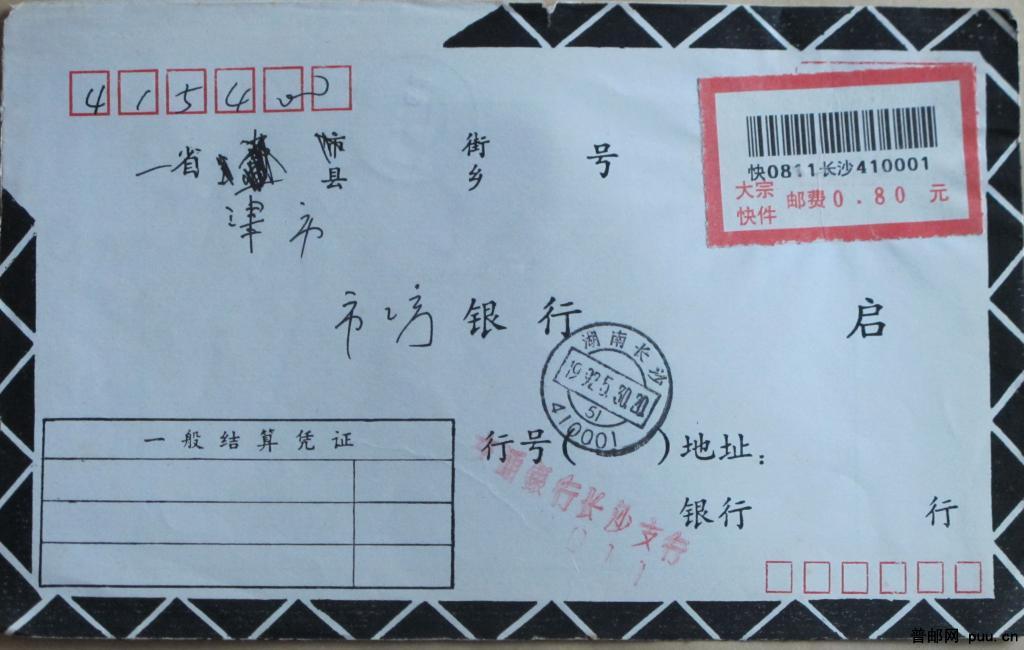 415400
快0811长沙410001
大宗
快件 邮费0.80 元
省 市 街 号
县 乡
津市
银行 启
湖南长沙
1992.5.30.20
51
410001
一般结算凭证
行号( )地址:
交通银行长沙支行
011
银行 行
普邮网 puu.cn